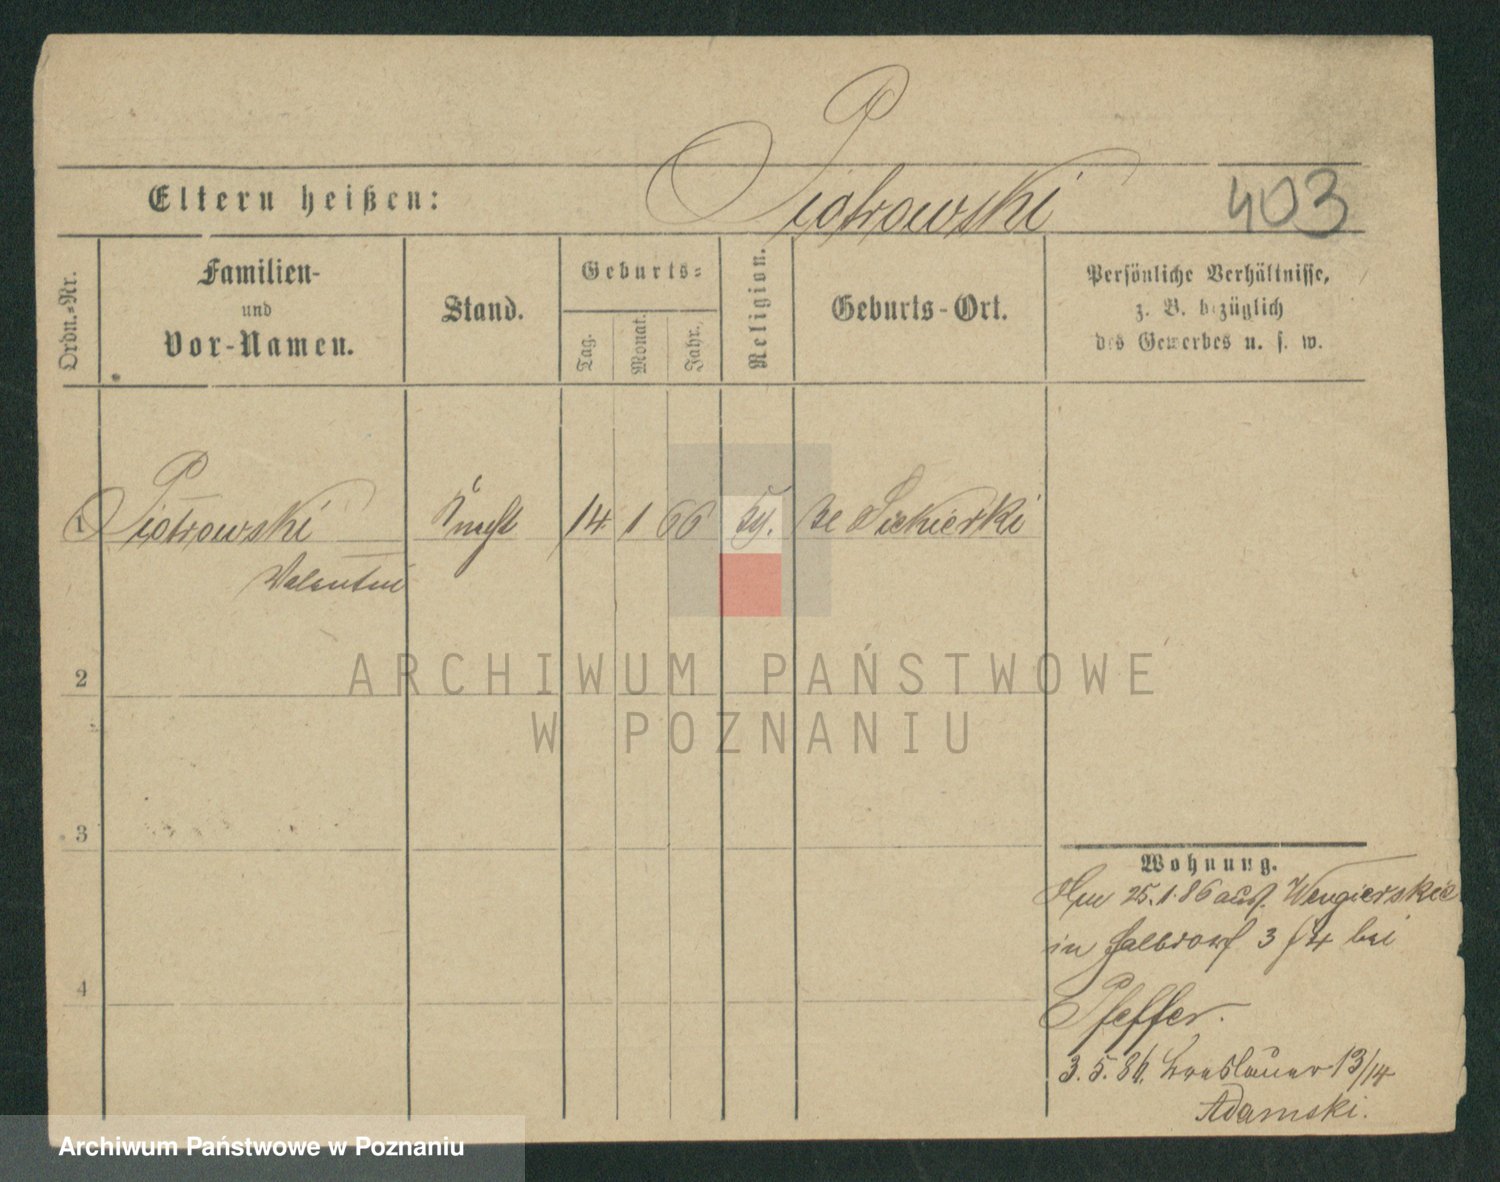 Piotrowski
Eltern heißen:
403
Ordn.-Nr.
Familien-
und
Vor-Namen.
Stand.
Geburts-
Tag.
Monat.
Jahr.
Religion.
Geburts-Ort.
Persönliche Verhältnisse,
z. B. bezüglich
des Gewerbes u. s. w.
1 Piotrowski Knecht 14 1 66 Siekierki
Valentin
2
3
4
ARCHIWUM PAŃSTWOWE
W POZNANIU
Wohnung.
25.1.86 aus Wengierskie
in Halbdorf 3/4 bei
Pfeffer.
3.5.86. Breslauer 13/14
Adamski.
Archiwum Państwowe w Poznaniu